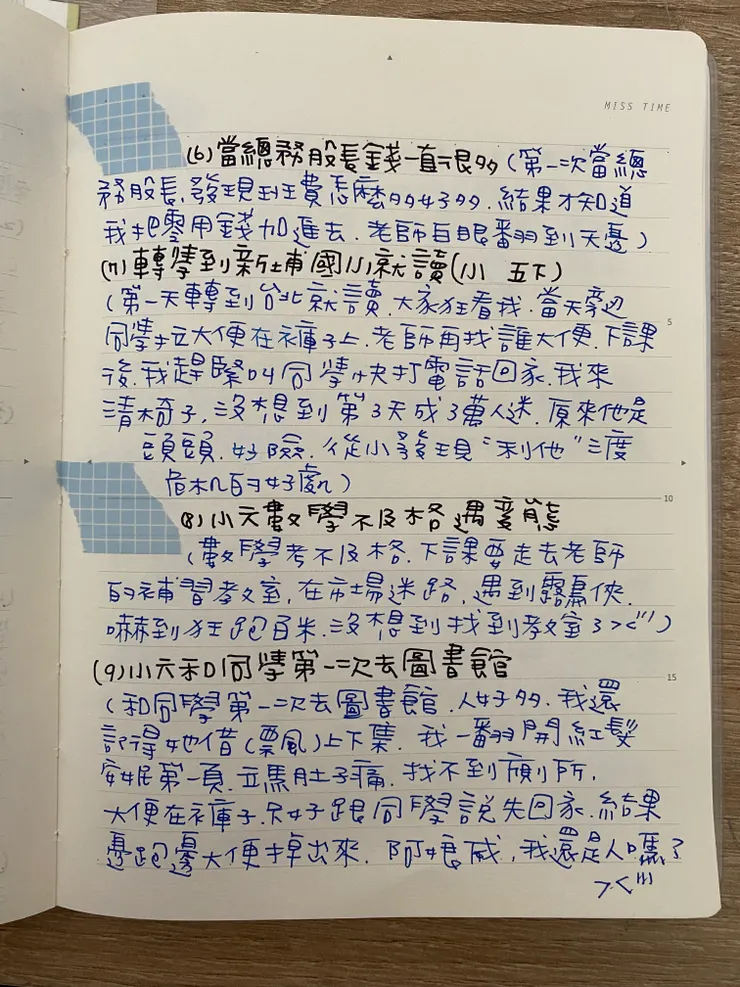 MISS TIME
(6)當總務股長錢一直很多(第一次當總
務股長,發現班費怎麼多好多.結果才知道
我把零用錢加進去.老師白眼翻到天邊)
(7)轉學到新埔國小就讀(小 五下)
(第一天轉到台北就讀.大家狂看我.當天旁邊
同學拉大便在褲子上.老師再找誰大便.下課
後.我趕緊叫同學快打電話回家.我來
清椅子.沒想到第3天成3萬人迷.原來他是
頭頭.好險.從小發現"利他"三度
危机的好處)
5
10
(8)小六數學不及格遇變態
(數學考不及格.下課要走去老師
的補習教室.在市場迷路.遇到露鳥俠.
嚇到狂跑百米.沒想到找到教室3><''')
(9)小六和同學第一次去圖書館
15
(和同學第一次去圖書館.人好多.我還
記得她借(飄)上下集.我一翻開紅髮
安妮第一頁.立馬肚子痛.找不到廁所.
大便在褲子.只好跟同學說先回家.結果
邊跑邊大便掉出來.阿娘威.我還是人嗎?
><'''